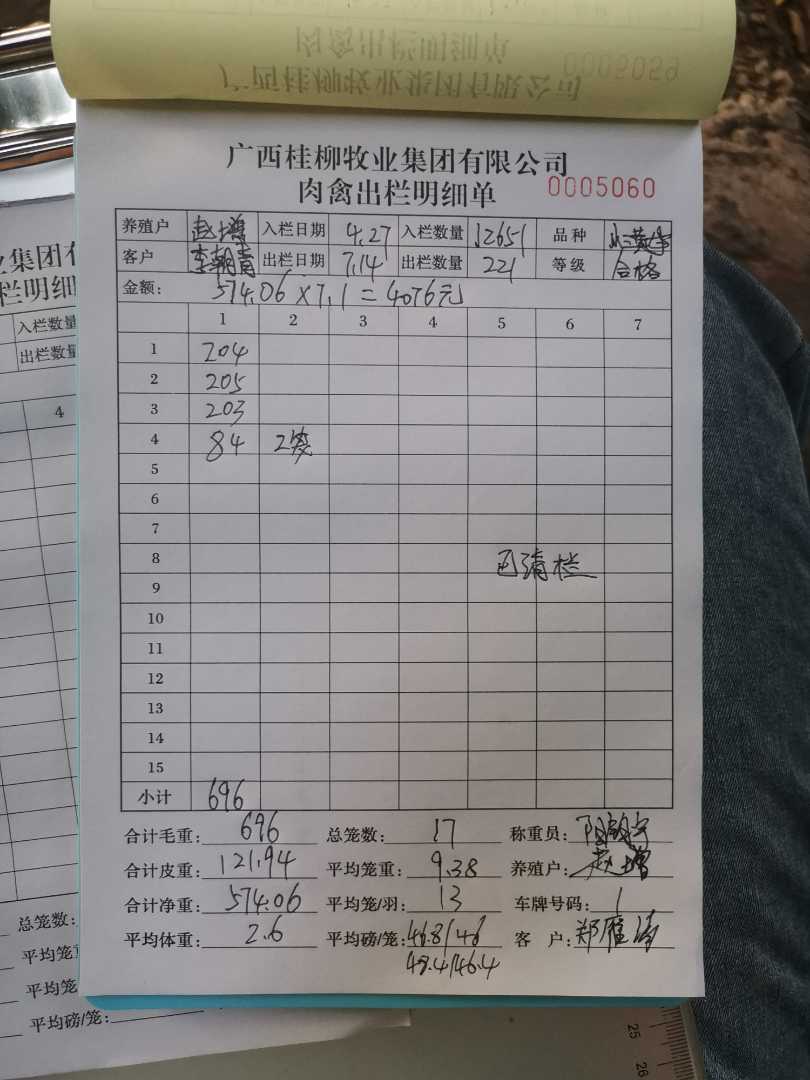 肉禽出栏明细单
0005059
广西桂柳牧业集团有限公司
广西桂柳牧业集团有限公司
肉禽出栏明细单 0005060
养殖户 赵增 入栏日期 4.27 入栏数量 12651 品种
客户 李朝青 出栏日期 7.14 出栏数量 221 等级 合格
金额: 574.06×7.1=4076元
1 2 3 4 5 6 7
1 204
2 205
3 203
4 84 2笼
5
6
7
8 已清栏
9
10
11
12
13
14
15
小计 696
合计毛重: 696 总笼数: 17 称重员:
合计皮重: 121.94 平均笼重: 9.38 养殖户: 赵增
合计净重: 574.06 平均笼/羽: 13 车牌号码: 1
平均体重: 2.6 平均磅/笼: 46.8/46 客户: 郑雁涛
/46.4
集团有
栏明细
入栏数量
出栏数量
4
总笼数:
平均笼
平均笼
平均磅/笼:
25
26